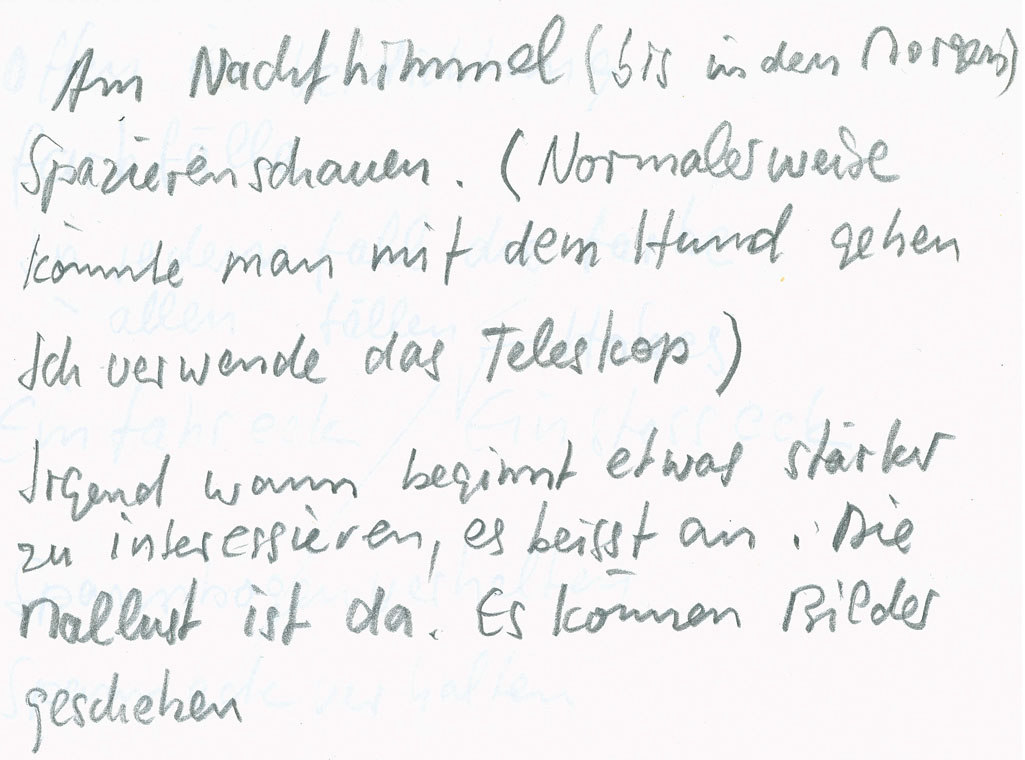 Am Nachthimmel (bis in den Morgen)
Spazierenschauen. (Normalerweise
könnte man mit dem Hund gehen
Ich verwende das Teleskop)
Irgend wann beginnt etwas stärker
zu interessieren, es beisst an. Die
Mallust ist da. Es können Bilder
geschehen